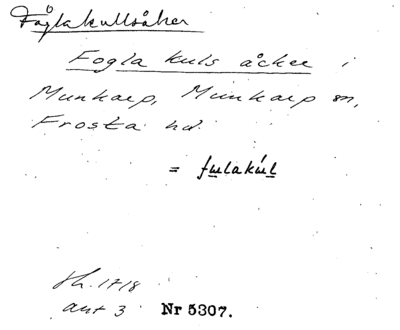 Fåglakullsåker
Fogla kuls åcker i
Munkarp, Munkarp sn,
Frosta hd.
= fulakúl
1718
akt 3 Nr 5307.